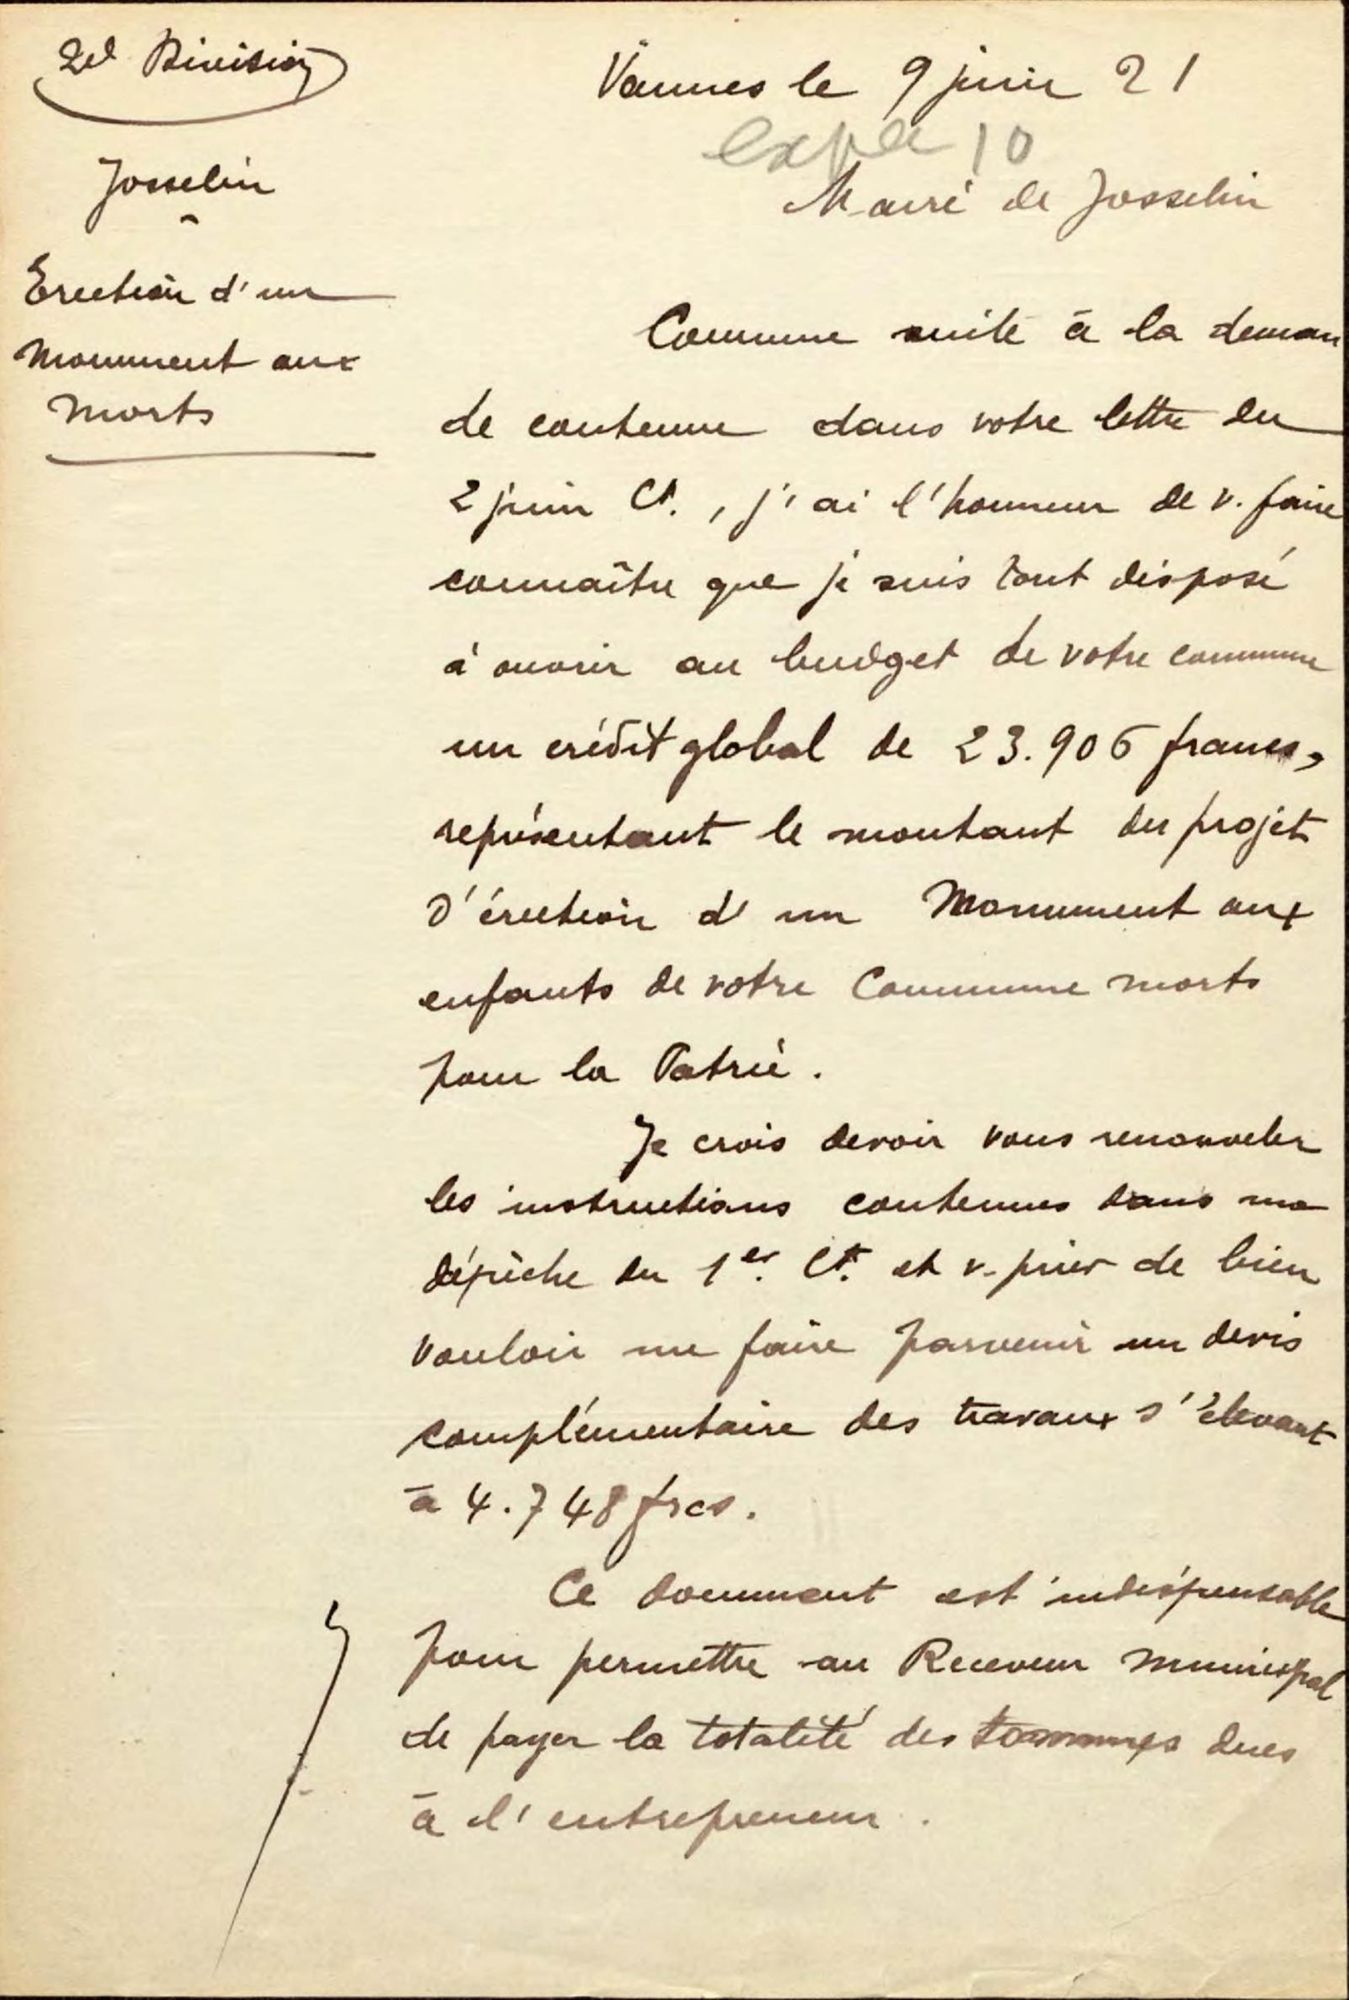 2e Division
Vannes le 9 juin 21
expé 10
Josselin
Maire de Josselin
Erection d'un
Monument aux
morts
Comme suite à la deman
de contenue dans votre lettre du
2 juin Ct., j'ai l'honneur de v. faire
connaître que je suis tout disposé
à ouvrir au budget de votre commune
un crédit global de 23.906 francs,
représentant le montant du projet
d'érection d'un Monument aux
enfants de votre Commune morts
pour la Patrie.
Je crois devoir vous renouveler
les instructions contenues dans ma
dépêche du 1er. Ct. et v. prier de bien
vouloir me faire parvenir un devis
complémentaire des travaux s'élevant
à 4.748 frcs.
Ce document est indispensable
pour permettre au Receveur municipal
de payer la totalité des sommes dues
à l'entrepreneur.